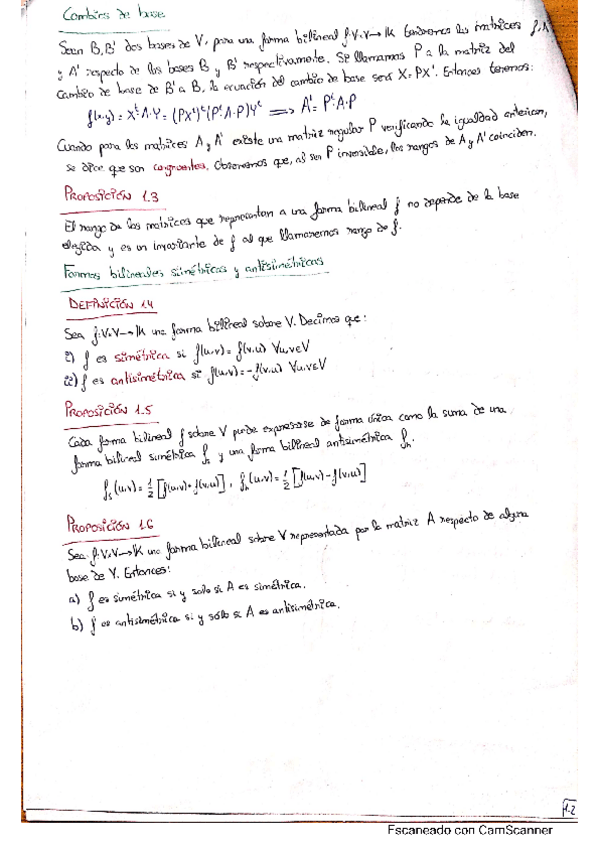 Cambios de base
Sean B, B' dos bases de V, para una forma bilineal f:V×V→K tendremos las matrices A
y A' respecto de las bases B y B' respectivamente. Si llamamos P a la matriz del
cambio de base de B' a B, la ecuación del cambio de base será X=PX'. Entonces tenemos:
f(x,y) = XᵗAY = (PX')ᵗ(PᵗA·P)Yᵗ ⟹ A' = PᵗA·P
Cuando para las matrices A y A' existe una matriz regular P verificando la igualdad anterior,
se dice que son congruentes. Observemos que, al ser P inversible, los rangos de A y A' coinciden.
PROPOSICIÓN 1.3
El rango de las matrices que representan a una forma bilineal f no depende de la base
elegida y es un invariante de f al que llamaremos rango de f.
Formas bilineales simétricas y antisimétricas
DEFINICIÓN 1.4
Sea f:V×V→K una forma bilineal sobre V. Decimos que:
i) f es simétrica si f(u,v)=f(v,u) ∀u,v∈V
ii) f es antisimétrica si f(u,v)=-f(v,u) ∀u,v∈V
PROPOSICIÓN 1.5
Cada forma bilineal f sobre V puede expresarse de forma única como la suma de una
forma bilineal simétrica fₛ y una forma bilineal antisimétrica fₕ.
fₛ(u,v)=1/2[f(u,v)+f(v,u)], fₕ(u,v)=1/2[f(u,v)-f(v,u)]
PROPOSICIÓN 1.6
Sea f:V×V→K una forma bilineal sobre V representada por la matriz A respecto de alguna
base de V. Entonces:
a) f es simétrica si y solo si A es simétrica.
b) f es antisimétrica si y sólo si A es antisimétrica.
1.2
Escaneado con CamScanner